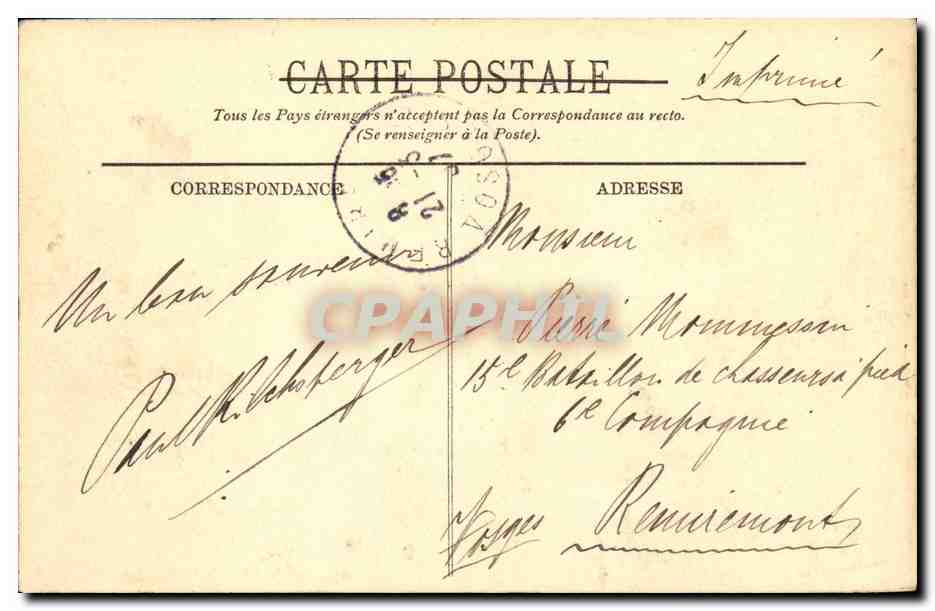 CARTE POSTALE
Imprimé
Tous les Pays étrangers n'acceptent pas la Correspondance au recto.
(Se renseigner à la Poste).
CORRESPONDANCE
ADRESSE
Un bon souvenir
Paul
Monsieur
Pierre Mommessin
15e Bataillon de chasseurs à pied
6e Compagnie
Vosges
Remiremont
CPAPHIL